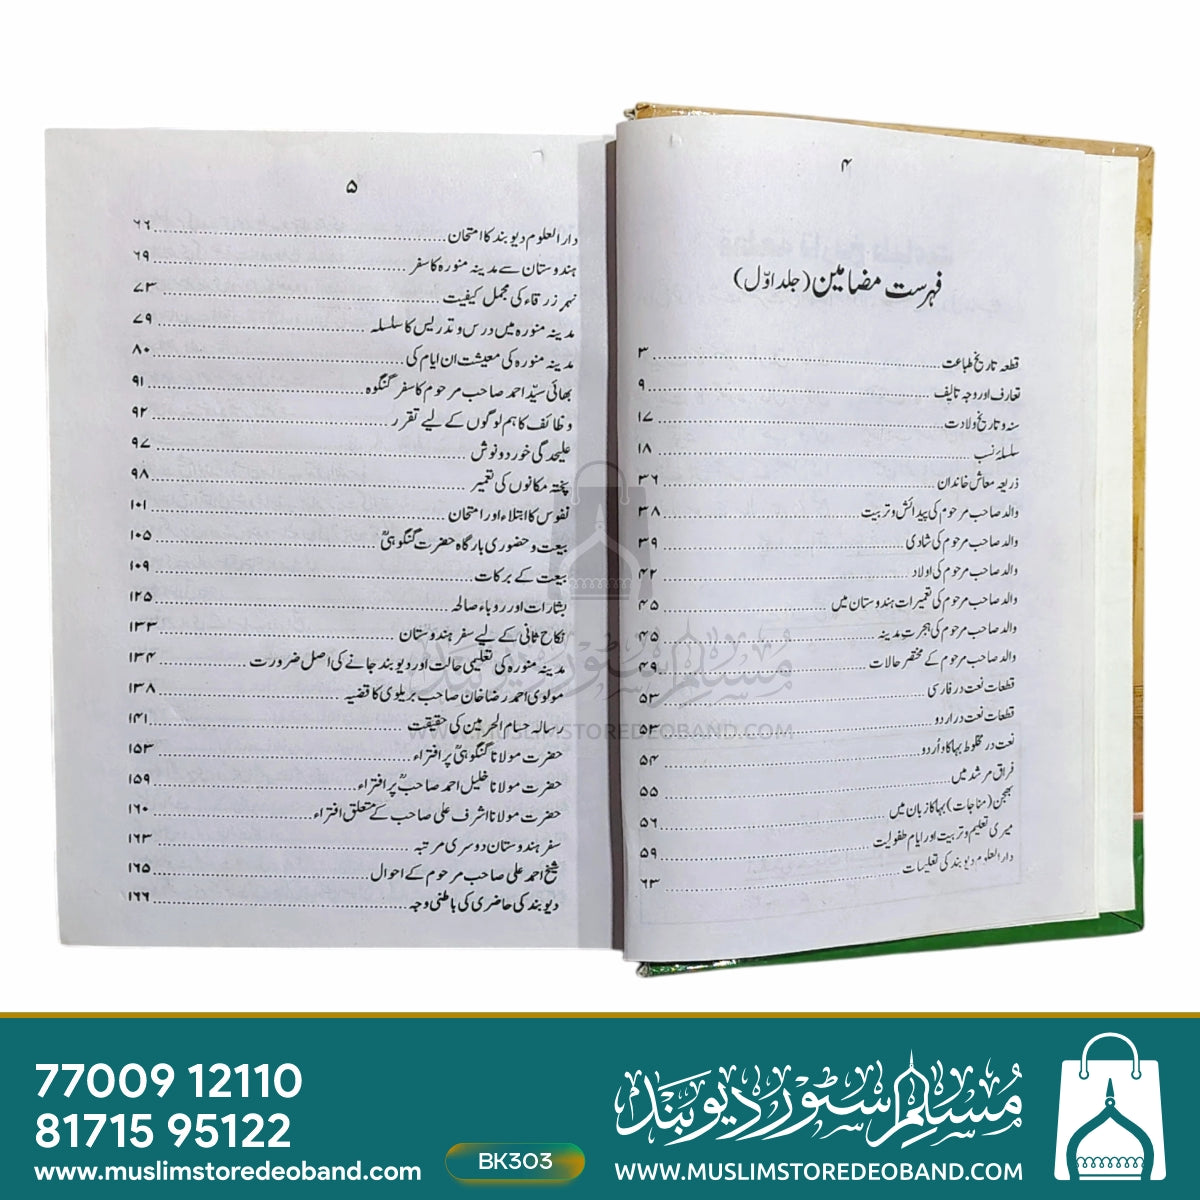 ۴
فہرست مضامین (جلد اوّل)
قطعہ تاریخ طباعت ۳
تعارف اور وجہ تالیف ۹
سنہ و تاریخ ولادت ۱۷
سلسلۂ نسب ۱۸
ذریعہ معاش خاندان ۳۶
والد صاحب مرحوم کی پیدائش و تربیت ۳۸
والد صاحب مرحوم کی شادی ۳۹
والد صاحب مرحوم کی اولاد ۴۲
والد صاحب مرحوم کی تعمیرات ہندوستان میں ۴۵
والد صاحب مرحوم کی ہجرتِ مدینہ ۴۵
والد صاحب مرحوم کے مختصر حالات ۴۹
قطعات نعت در فارسی ۵۳
قطعات نعت در اردو ۵۳
نعت در مخلوط بہاکا و اُردو ۵۴
فراق مرشد میں ۵۵
بھجن (مناجات) بہاکا زبان میں ۵۶
میری تعلیم و تربیت اور ایام طفولیت ۵۹
دارالعلوم دیوبند کی تعلیمات ۶۳
۵
دارالعلوم دیوبند کا امتحان ۶۶
ہندوستان سے مدینہ منورہ کا سفر ۶۹
نہر زرقاء کی مجمل کیفیت ۷۳
مدینہ منورہ میں درس و تدریس کا سلسلہ ۷۹
مدینہ منورہ کی معیشت ان ایام کی ۸۰
بھائی سیّد احمد صاحب مرحوم کا سفر گنگوہ ۹۱
وظائف کا ہم لوگوں کے لیے تقرر ۹۲
علیحدگی خورد و نوش ۹۷
پختہ مکانوں کی تعمیر ۹۸
نفوس کا ابتلاء اور امتحان ۱۰۱
بیعت و حضوری بارگاہ حضرت گنگوہیؒ ۱۰۵
بیعت کے برکات ۱۰۹
بشارات اور رویاء صالحہ ۱۲۵
نکاح ثانی کے لیے سفر ہندوستان ۱۳۳
مدینہ منورہ کی تعلیمی حالت اور دیوبند جانے کی اصل ضرورت ۱۳۴
مولوی احمد رضا خان صاحب بریلوی کا قضیہ ۱۳۸
رسالہ حسام الحرمین کی حقیقت ۱۴۱
حضرت مولانا گنگوہیؒ پر افتراء ۱۵۳
حضرت مولانا خلیل احمد صاحبؒ پر افتراء ۱۵۹
حضرت مولانا اشرف علی صاحب کے متعلق افتراء ۱۶۰
سفر ہندوستان دوسری مرتبہ ۱۶۳
شیخ احمد علی صاحب مرحوم کے احوال ۱۶۵
دیوبند کی حاضری کی باطنی وجہ ۱۶۶
مسلم سٹور دیوبند
WWW.MUSLIMSTOREDEOBAND.COM
77009 12110
81715 95122
www.muslimstoredeoband.com
BK303
مسلم سٹور دیوبند
WWW.MUSLIMSTOREDEOBAND.COM